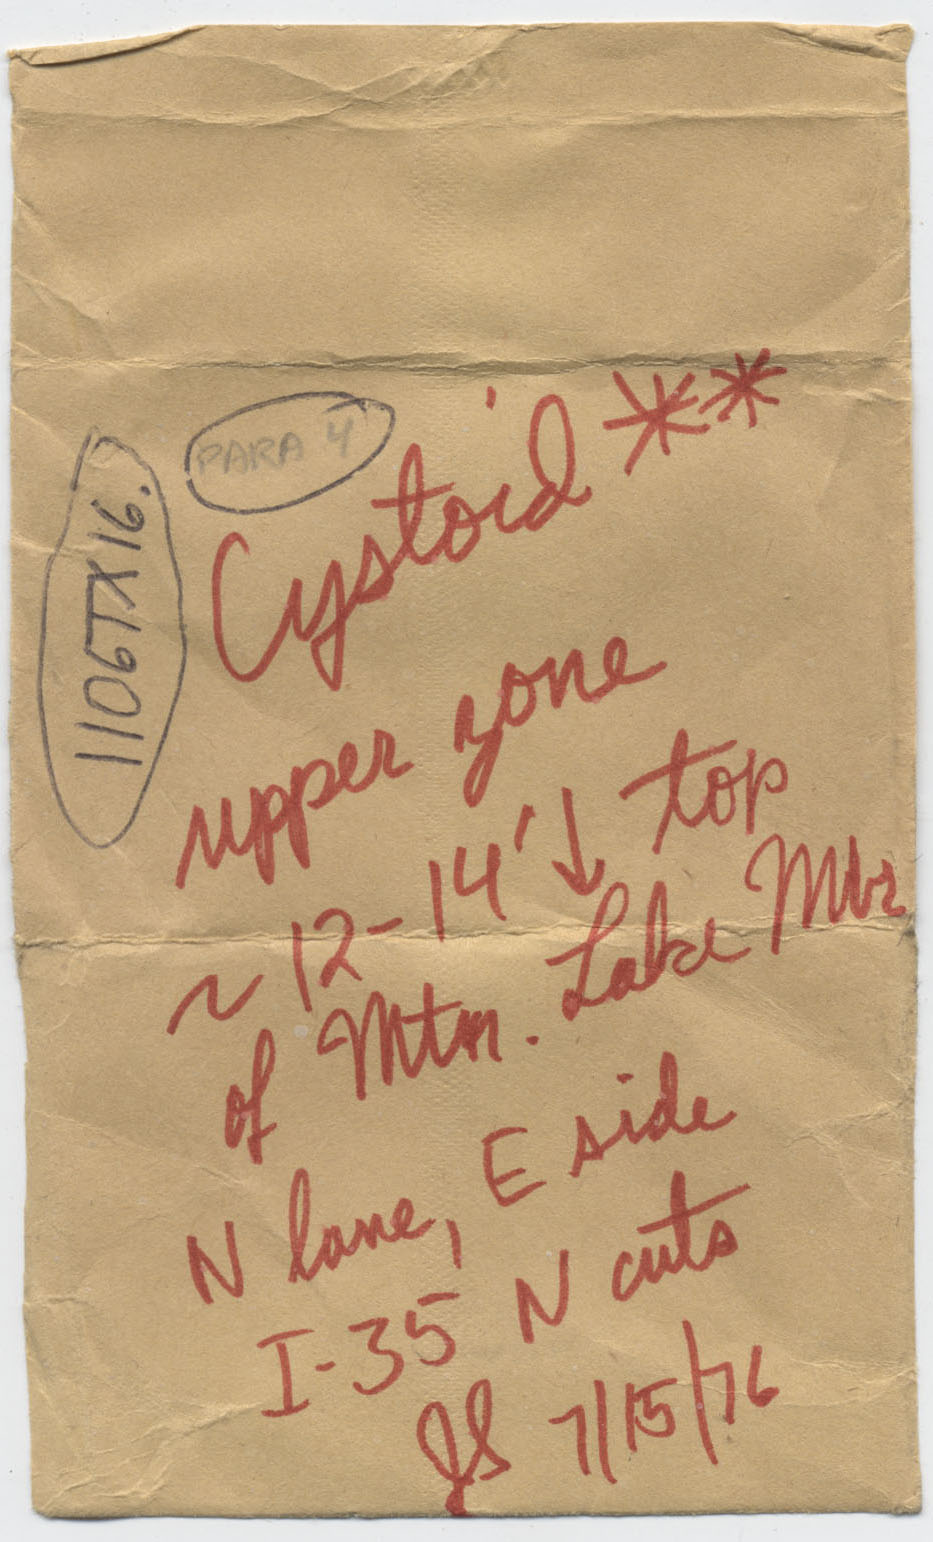 PARA 4
1106TX16.
Cystoid **
upper zone
~ 12-14' ↓ top
of Mtn. Lake Mbr
N lane, E side
I-35 N cuts
JS 7/15/76